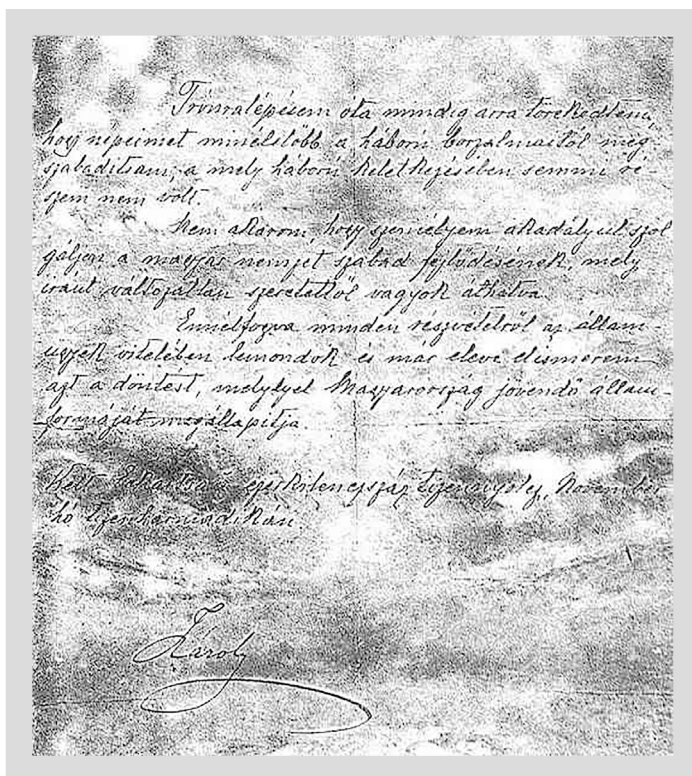 Trónralépésem óta mindig arra törekedtem,
hogy népeimet minélelőbb a háború borzalmaitól meg-
szabadítsam, a mely háború keletkezésében semmi ré-
szem nem volt.
Nem akarom, hogy személyem akadályul szol
gáljon a magyar nemzet szabad fejlődésének, mely
iránt változatlan szeretettől vagyok áthatva.
Ennélfogva minden részvételről az állam-
ügyek vitelében lemondok és már eleve elismerem
azt a döntést, melylyel Magyarország jövendő állam-
formáját megállapítja.
Kelt Eckartsau, ezerkilencszáz tizennyolcz, November
hó tizenharmadikán.
Károly